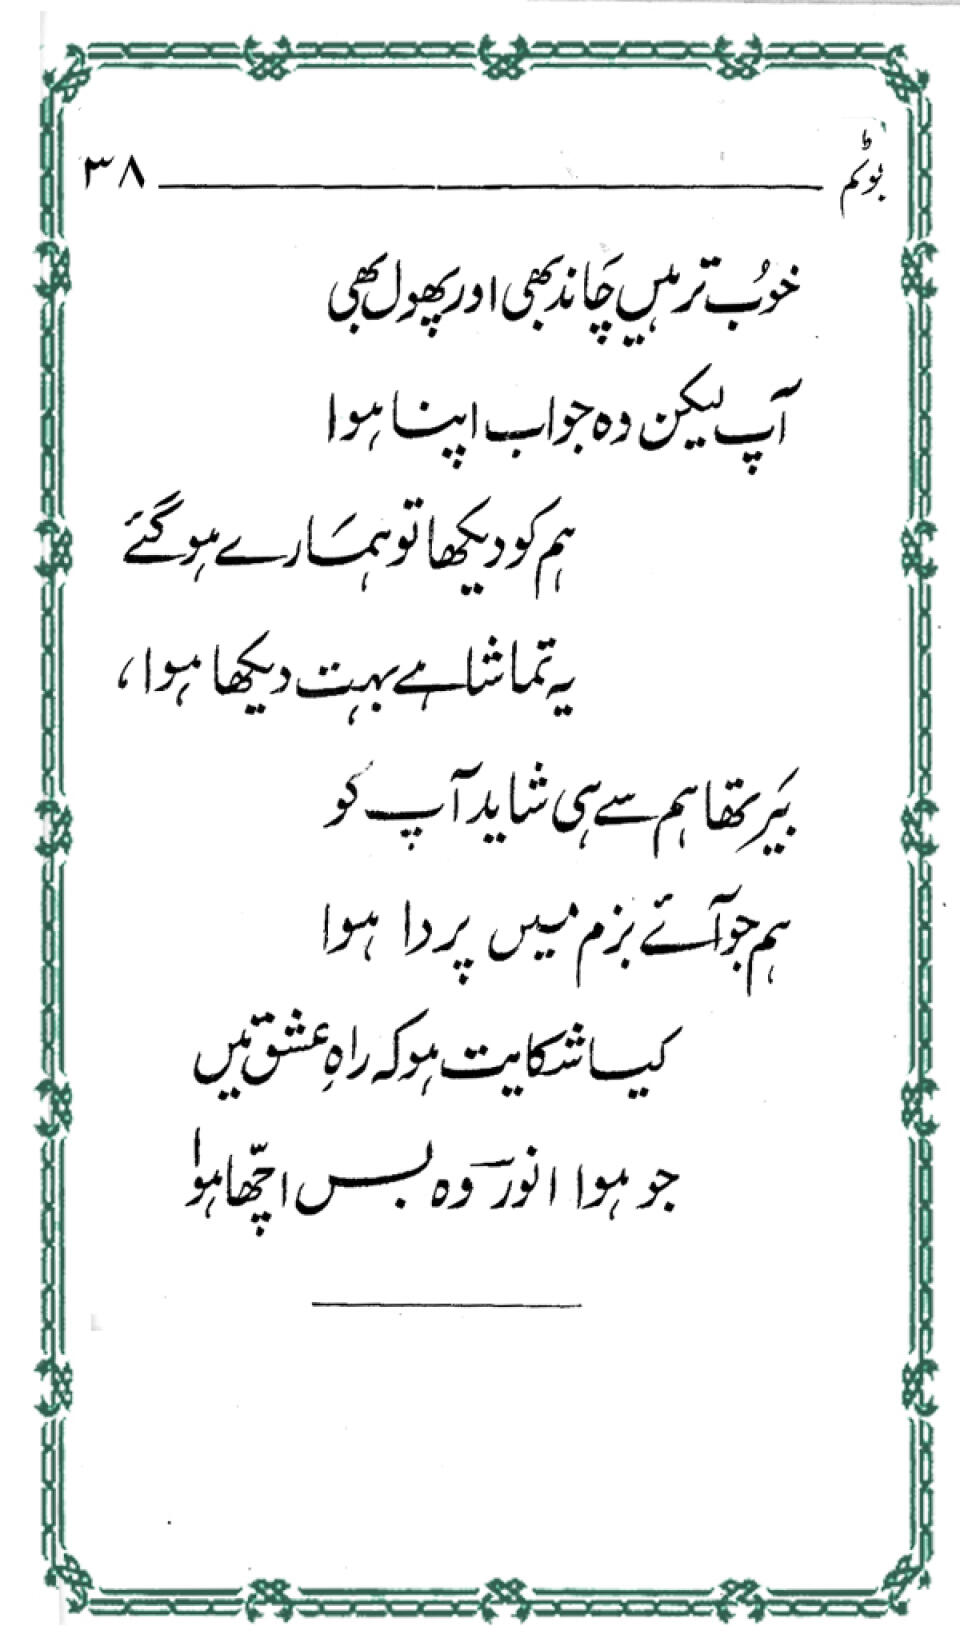 بوٹم ۳۸
خوُب تر ہیں چاند بھی اور پھول بھی
آپ لیکن وہ جواب اپنا ہوا
ہم کو دیکھا تو ہمارے ہو گئے
یہ تماشا ہے بہت دیکھا ہوا،
بَیر تھا ہم سے ہی شاید آپ کو
ہم جو آئے بزم میں پردا ہوا
کیا شکایت ہو کہ راہِ عشق میں
جو ہوا انورؔ وہ بس اچّھا ہوا